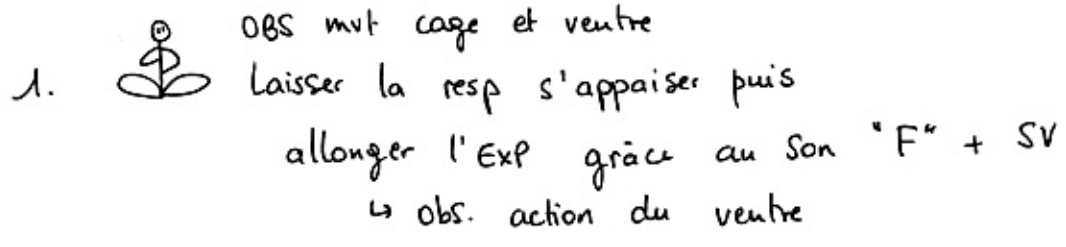 OBS mvt cage et ventre
1. Laisser la resp s'appaiser puis
allonger l'EXP grâce au son "F" + SV
↳ obs. action du ventre